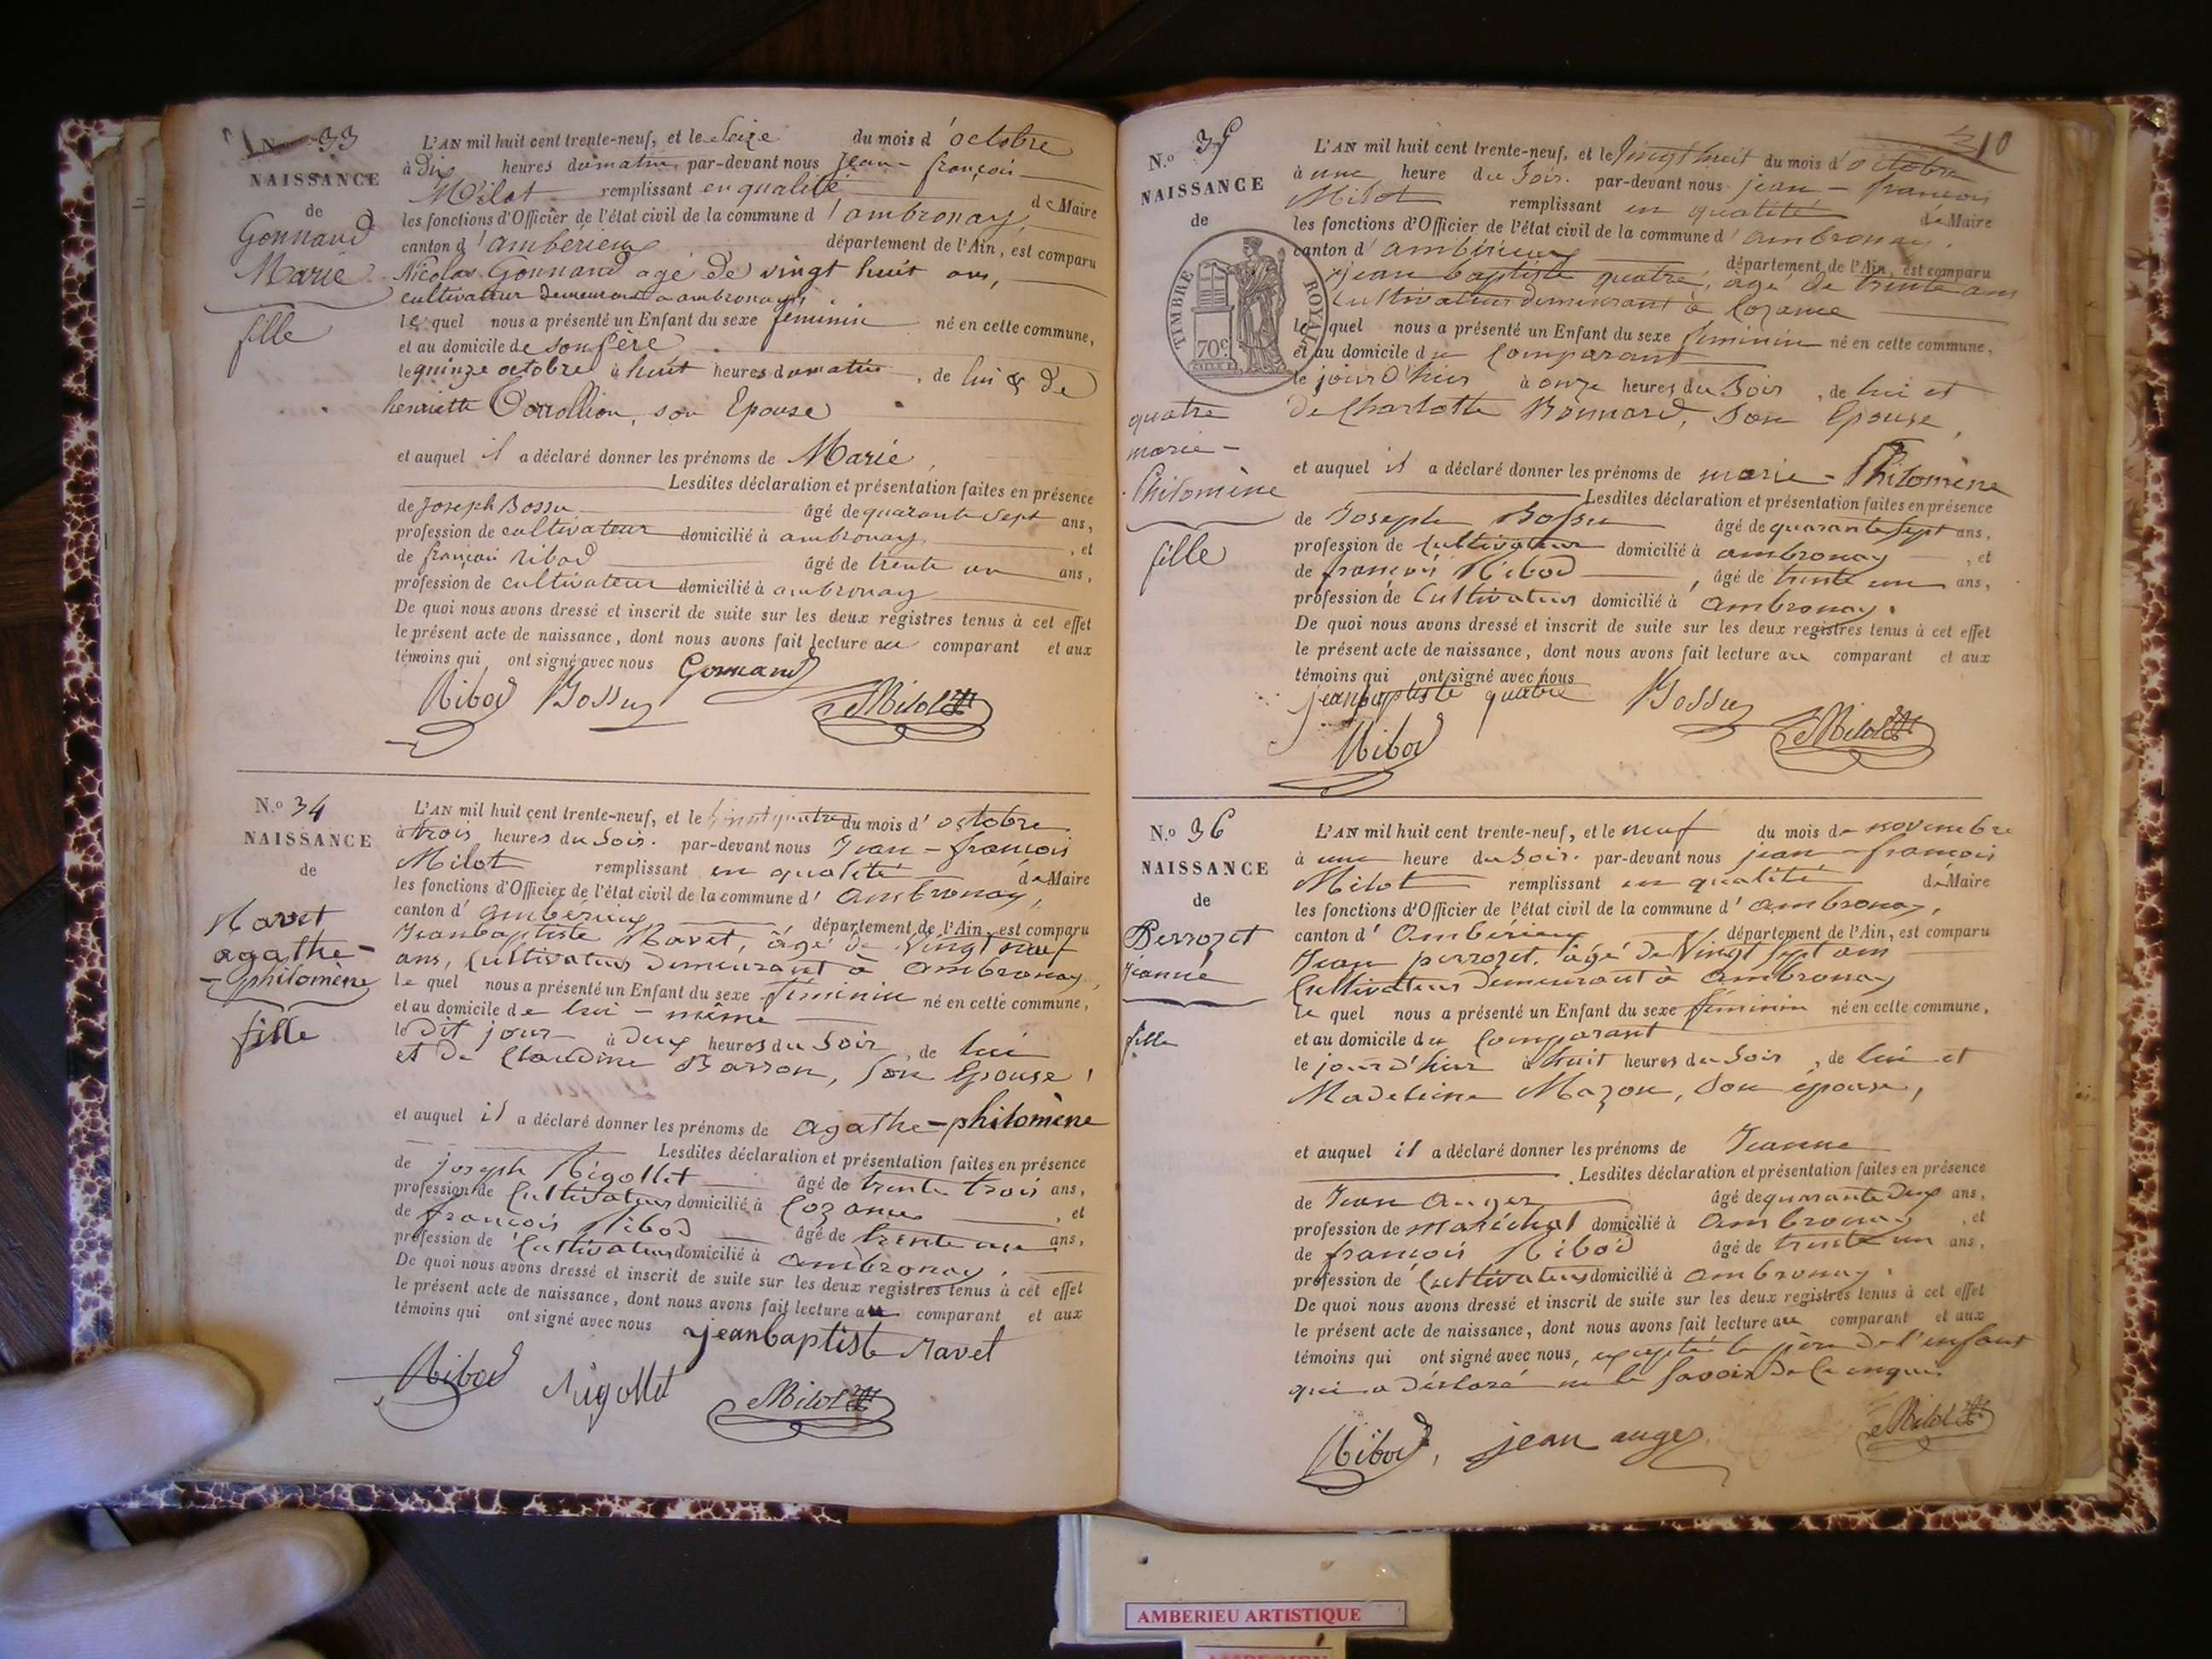 N.º 33
NAISSANCE
de
Gonnand
Marie
fille
L'AN mil huit cent trente-neuf, et le Seize du mois d'octobre
à Dix heures du matin, par-devant nous Jean-françois
Milot remplissant en qualité de Maire
les fonctions d'Officier de l'état civil de la commune d'ambronay,
canton d'ambérieux département de l'Ain, est comparu
Nicolas Gonnand agé de vingt huit ans,
cultivateur demeurant a ambronay,
lequel nous a présenté un Enfant du sexe féminin né en cette commune,
et au domicile de son père
le quinze octobre à huit heures du matin, de lui & de
henriette son Epouse
et auquel il a déclaré donner les prénoms de Marie,
Lesdites déclaration et présentation faites en présence
de Joseph Bossu âgé de quarante sept ans,
profession de cultivateur domicilié à ambronay, et
de françois ribod âgé de trente un ans,
profession de cultivateur domicilié à ambronay
De quoi nous avons dressé et inscrit de suite sur les deux registres tenus à cet effet
le présent acte de naissance, dont nous avons fait lecture au comparant et aux
témoins qui ont signé avec nous Gonnand
Ribod Bossu Milot
N.º 34
NAISSANCE
de
Ravet
agathe-
-philomène
fille
L'AN mil huit cent trente-neuf, et le vingt quatre du mois d'octobre
à trois heures du Soir. par-devant nous Jean-françois
Milot remplissant en qualité de Maire
les fonctions d'Officier de l'état civil de la commune d'ambronay,
canton d'ambérieux département de l'Ain, est comparu
Jeanbaptiste Ravet, âgé de vingt neuf
ans, Cultivateur demeurant à ambronay
le quel nous a présenté un Enfant du sexe féminin né en cette commune,
et au domicile de lui-même
le dit jour à deux heures du Soir, de lui
et de Claudine Barron, son Epouse,
et auquel il a déclaré donner les prénoms de agathe-philomène
Lesdites déclaration et présentation faites en présence
de joseph Rigollet âgé de trente trois ans,
profession de Cultivateur domicilié à Cozance, et
de françois Ribod âgé de trente un ans,
profession de Cultivateur domicilié à ambronay.
De quoi nous avons dressé et inscrit de suite sur les deux registres tenus à cet effet
le présent acte de naissance, dont nous avons fait lecture au comparant et aux
témoins qui ont signé avec nous jeanbaptiste ravet
Ribod rigollet Milot
10
N.º 35
NAISSANCE
de
TIMBRE ROYAL
70c
quatre
marie-
Philomène
fille
L'AN mil huit cent trente-neuf, et le vingt huit du mois d'octobre
à une heure du Soir. par-devant nous jean-françois
Milot remplissant en qualité de Maire
les fonctions d'Officier de l'état civil de la commune d'ambronay,
canton d'ambérieux département de l'Ain, est comparu
jean baptiste quatre, âgé de trente ans
Cultivateur demeurant à Cozance
le quel nous a présenté un Enfant du sexe féminin né en cette commune,
et au domicile du Comparant
le jour d'hier à onze heures du Soir, de lui et
de Charlotte Bonnard, son Epouse,
et auquel il a déclaré donner les prénoms de marie-Philomène
Lesdites déclaration et présentation faites en présence
de Joseph Bossu âgé de quarante sept ans,
profession de Cultivateur domicilié à ambronay, et
de françois Ribod, âgé de trente un ans,
profession de Cultivateur domicilié à ambronay.
De quoi nous avons dressé et inscrit de suite sur les deux registres tenus à cet effet
le présent acte de naissance, dont nous avons fait lecture au comparant et aux
témoins qui ont signé avec nous
jeanbaptiste quatre Bossu
Ribod Milot
N.º 36
NAISSANCE
de
Perrozet
jeanne
fille
L'AN mil huit cent trente-neuf, et le neuf du mois de novembre
à une heure du Soir. par-devant nous jean-françois
Milot remplissant en qualité de Maire
les fonctions d'Officier de l'état civil de la commune d'ambronay,
canton d'Ambérieux département de l'Ain, est comparu
Jean perrozet, âgé de Vingt Sept ans
Cultivateur demeurant à ambronay
le quel nous a présenté un Enfant du sexe féminin né en cette commune,
et au domicile du Comparant
le jour d'hier à huit heures du Soir, de lui et
Madeleine Mazon, son épouse,
et auquel il a déclaré donner les prénoms de Jeanne
Lesdites déclaration et présentation faites en présence
de Jean Auger âgé de quarante deux ans,
profession de maréchal domicilié à ambronay, et
de françois Ribod âgé de trente un ans,
profession de Cultivateur domicilié à ambronay.
De quoi nous avons dressé et inscrit de suite sur les deux registres tenus à cet effet
le présent acte de naissance, dont nous avons fait lecture au comparant et aux
témoins qui ont signé avec nous, excepté le père de l'enfant
qui a déclaré ne le savoir de ce enquis
Ribod, jean auger Milot
AMBERIEU ARTISTIQUE